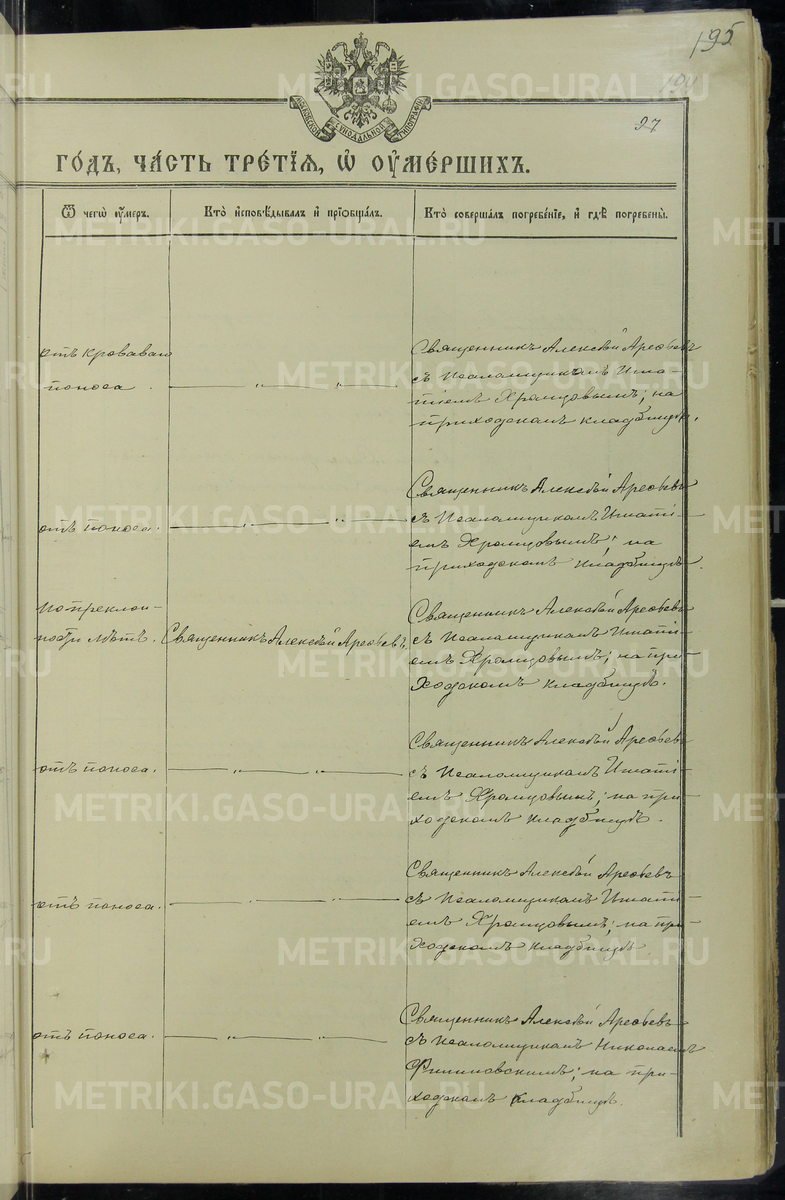 195
194
27
МОСКОВСКОЙ СѴНОДАЛЬНОЙ ТИПОГРАФІИ
ГО́ДЪ, ЧА́СТЬ ТРЕ́ТІЯ, Ѡ҆ ОУ҆МЕ́РШИХЪ.
Ѿ чегѡ̀ оу҆́меръ.
Кто̀ и҆сповѣ́дывалъ и҆ прїѡбща́лъ.
Кто̀ соверша́лъ погребе́нїе, и҆ гдѣ̀ погребены̀.
отъ кроваваго
поноса .
— „ — „ —
Священникъ Алексѣй Арефьевъ
съ Псаломщикомъ Игна-
тіемъ Храмцовымъ; на
приходскомъ кладбищѣ.
отъ поноса.
— „ — „ —
Священникъ Алексѣй Арефьевъ
съ Псаломщикомъ Игнаті-
емъ Храмцовымъ; на
приходскомъ кладбищѣ.
по преклон-
ности лѣтъ.
Священникъ Алексѣй Арефьевъ.
Священникъ Алексѣй Арефьевъ
съ Псаломщикомъ Игнаті-
емъ Храмцовымъ; на при-
ходскомъ кладбищѣ.
отъ поноса.
— „ — „ —
Священникъ Алексѣй Арефьевъ
съ Псаломщикомъ Игнаті-
емъ Храмцовымъ; на при-
ходскомъ кладбищѣ.
отъ поноса.
— „ — „ —
Священникъ Алексѣй Арефьевъ
съ Псаломщикомъ Игнаті-
емъ Храмцовымъ; на при-
ходскомъ кладбищѣ
отъ поноса.
— „ — „ —
Священникъ Алексѣй Арефьевъ
съ Псаломщикомъ Николаемъ
Филиповскимъ; на при-
ходскомъ кладбищѣ.
METRIKI.GASO-URAL.RU